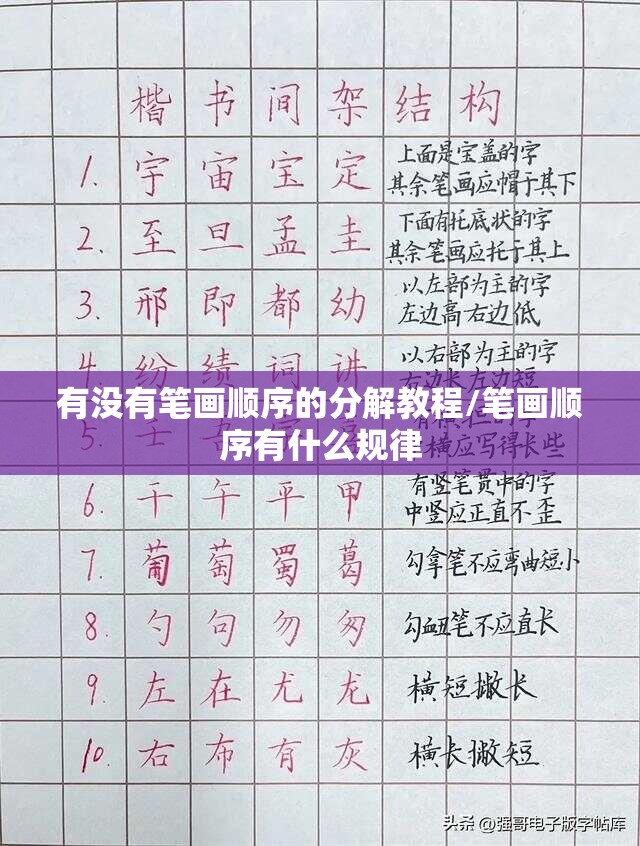 楷书间架结构
1. 宇宙宝定 上面是宝盖的字
其余笔画应帽于其下
2. 至旦孟圭 下面有托底状的字
其余笔画应托于其上
3. 邢即都幼 以左部为主的字
左边高右边低
4. 纷绩词讲 以右部为主的字
右边长左边短
有没有笔画顺序的分解教程/笔画顺
序有什么规律
5.
横应写得长些
6. 干午平甲 有竖笔贯中的字
中竖应正直不歪
7. 葡萄蜀葛 勾拿笔不应弯曲短小
8. 勺句勿匆 勾血笔不应直长
9. 左在尤龙 横短撇长
10. 右布有灰 横长撇短
头条 @强哥电子版字帖库